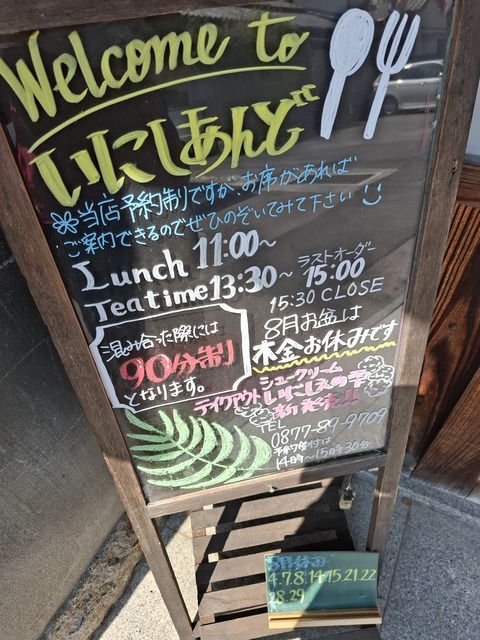 Welcome to
いにしあんど
※当店予約制ですが、お席があれば
ご案内できるのでぜひのぞいてみて下さい
Lunch 11:00~
Teatime 13:30~ ラストオーダー 15:00
15:30 CLOSE
混み合った際には
90分制
となります。
8月お盆は
木金お休みです
テイクアウト シュークリーム
いにしえの雫
新発売!!
TEL
0877-89-9709
予約受付は
14時~15時30分
8月休み
4.7.8.14.15.21.22
28.29